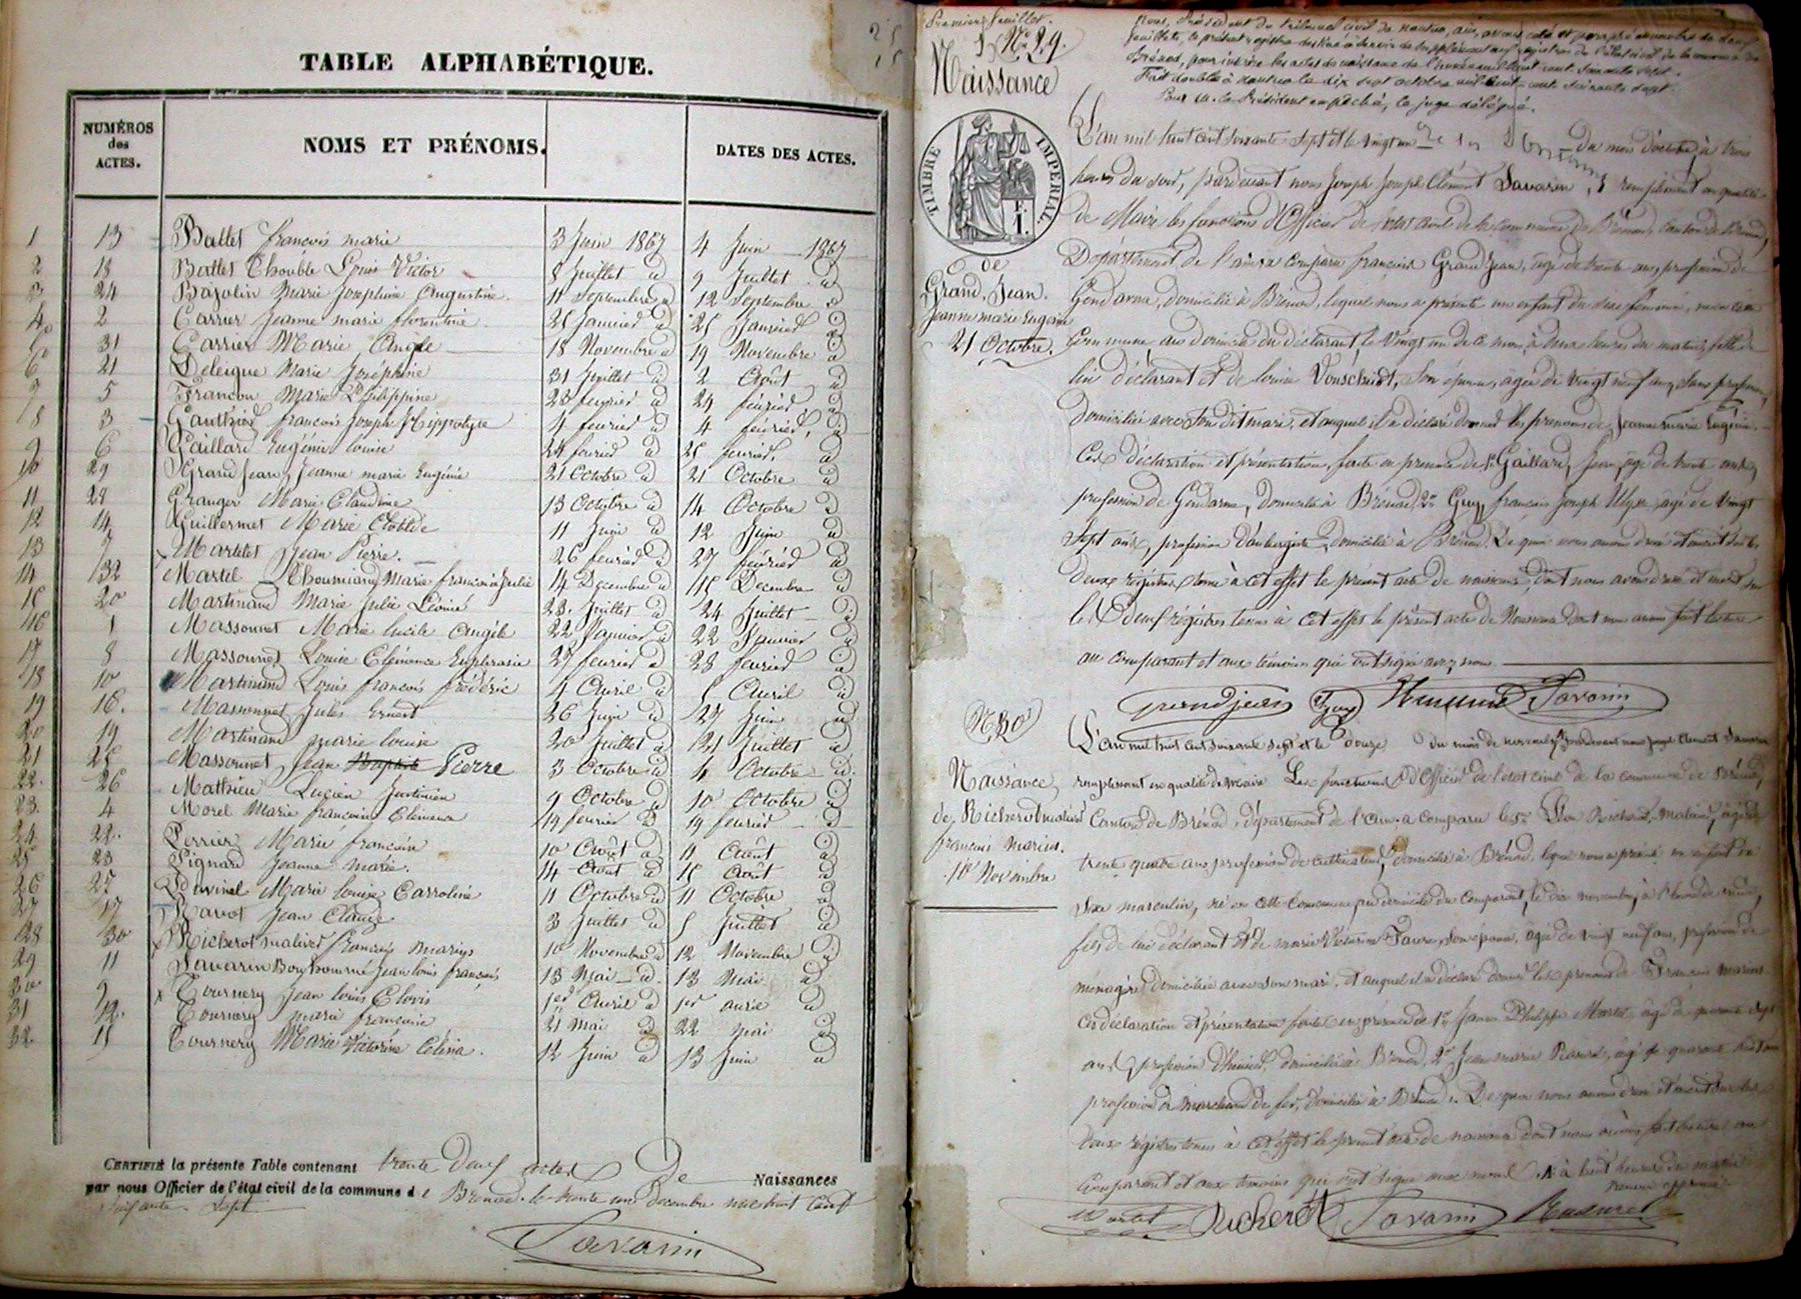 TABLE ALPHABÉTIQUE.
NUMÉROS des ACTES.
NOMS ET PRÉNOMS.
DATES DES ACTES.
1 13 Ballet françois marie 3 Juin 1867 4 Juin 1867
2 18 Ballet Louis Victor 8 Juillet id 9 Juillet id
3 24 Bajolin Marie Josephine Augustine 11 Septembre id 12 Septembre id
4 2 Carrier Jeanne marie florentine 25 Janvier id 25 Janvier id
31 Carrier Marie Angèle 18 Novembre id 19 Novembre id
6 21 Marie Joséphine 31 Juillet id 2 Août id
7 5 Francon Marie Philippine 23 février id 24 février id
8 3 Gauthier françois Joseph Hippolyte 4 février id 4 février id
9 6 Gaillard Eugénie louise 24 février id 25 février id
10 29 Grand Jean, Jeanne marie Eugénie 21 Octobre id 21 Octobre id
11 28 Granger Marie Claudine 13 Octobre id 14 Octobre id
12 14 Guillermet Marie Clotilde 11 Juin id 12 Juin id
13 7 Martelet Jean Pierre 26 février id 27 février id
14 32 Martel Marie françoise Julie 14 Décembre id 15 Décembre id
15 20 Martinand Marie Julie Léonie 23 Juillet id 24 Juillet id
16 1 Massonnet Marie lucile Angèle 22 Janvier id 22 Janvier id
17 8 Massonnet Louise Clémence Euphrasie 27 février id 28 février id
18 10 Martinand Louis françois frédéric 4 Avril id 5 Avril id
19 16 Massonnet Jules Ernest 26 Juin id 27 Juin id
20 19 Martinand marie louise 20 Juillet id 21 Juillet id
21 25 Massonnet Jean Baptiste Pierre 3 Octobre id 4 Octobre id
22 26 Mathieu Lucien Justinien 9 Octobre id 10 Octobre id
23 4 Morel Marie françoise Clémence 19 février id 19 février id
24 22 Perrier Marie françoise 10 Août id 11 Août id
25 23 Pignard Jeanne marie 14 Août id 15 Août id
26 27 Marie louise Carroline 11 Octobre id 11 Octobre id
27 17 Ravot Jean Claude 3 Juillet id 5 Juillet id
28 30 Richerot malivert françois marius 10 Novembre id 12 Novembre id
29 11 Savarin Jean louis françois 13 Mai id 13 Mai id
30 9 Tournery Jean louis Clovis 1er Avril id 1er avril id
31 12 Tournery marie françoise 21 Mai id 22 mai id
32 15 Tournery Marie Victorine Célina 12 Juin id 13 Juin id
CERTIFIÉ la présente Table contenant trente deux actes De Naissances
par nous Officier de l'état civil de la commune de Brénod le trente un décembre mil huit cent
soixante Sept
Savarin
Premier feuillet.
No 29.
Naissance
TIMBRE IMPERIAL
1 F.
de
Grand, Jean.
Jeanne marie Eugénie
21 Octobre.
Nous, Président du tribunal civil de Nantua, Ain, avons coté et paraphé
Fait double à Nantua le dix sept octobre mil huit cent soixante sept.
Pour M. le Président empêché, le juge délégué.
L'an mil huit cent soixante sept et le vingt un du mois d'octobre, à trois
heures du soir, pardevant nous Joseph Clément Savarin, remplissant en qualité
de Maire les fonctions d'Officier de l'état civil de la Commune de Brénod, canton de Brénod,
Département de l'ain, a comparu françois Grand Jean, âgé de trente ans, profession de
Gendarme, domicilié à Brénod, lequel nous a présenté un enfant du sexe féminin, née en cette
Commune au domicile du déclarant, le vingt un de ce mois, à deux heures du matin, fille de
lui déclarant et de louise son épouse, âgée de vingt neuf ans, sans profession,
domiciliée avec son dit mari, et auquel il a déclaré donner les prénoms de Jeanne marie Eugénie.
Ces déclaration et présentation faites en présence de 1° Gaillard Jean, âgé de trente ans,
profession de Gendarme, domicilié à Brénod, 2° Guy françois Joseph Ulysse âgé de vingt
sept ans, profession d'aubergiste, domicilié à Brénod. De quoi nous avons dressé et inscrit sur les
deux registres tenus à cet effet le présent acte de naissance, dont nous avons
les deux registres tenus à cet effet le présent acte de Naissance dont nous avons fait lecture
au comparant et aux témoins qui ont signé avec nous.
Grandjean Guy Savarin
No 30
Naissance
de Richerot malivert
françois Marius.
10 Novembre
L'an mil huit cent soixante sept et le douze du mois de novembre, pardevant nous Joseph Clément Savarin
remplissant en qualité de maire les fonctions d'Officier de l'état civil de la commune de Brénod,
Canton de Brénod, département de l'ain, a comparu le Sr Richerot-malivert, âgé de
trente quatre ans, profession de cultivateur, domicilié à Brénod, lequel nous a présenté un enfant du
sexe masculin, né en cette Commune au domicile du comparant, le dix novembre, à
fils de lui déclarant et de marie Victorine Favre, son épouse, âgée de vingt neuf ans, profession de
ménagère, domiciliée avec son mari, et auquel il a déclaré donner les prénoms de françois Marius.
Ces déclaration et présentation faites en présence de 1° Philippe Martel âgé de quarante sept
ans, profession d'huissier, domicilié à Brénod, 2° Jean marie âgé de quarante huit ans
profession de marchand de fer, domicilié à Brénod. De quoi nous avons dressé et inscrit sur les
deux registres tenus à cet effet le présent acte de naissance dont nous avons fait lecture au
Comparant et aux témoins qui ont signé avec nous. à huit heures du matin
Renvoi approuvé
Martel Richerot Savarin